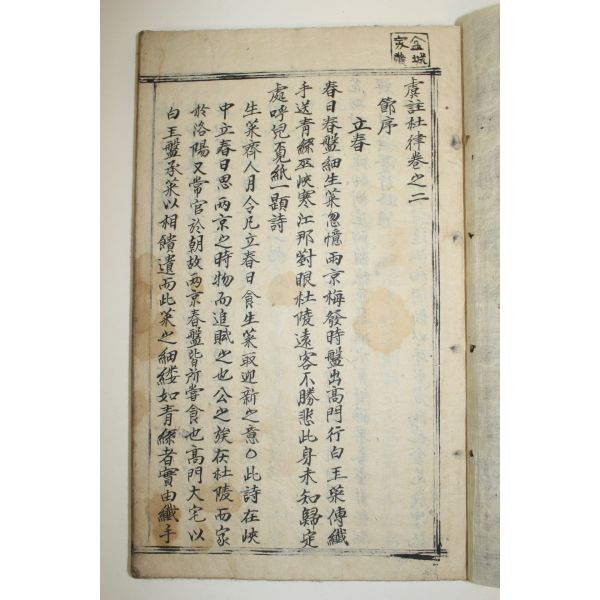 盆城
家藏
虞註杜律卷之二
節序
立春
春日春盤細生菜忽憶兩京梅發時盤出高門行白玉菜傳纖
手送青絲巫峽寒江那對眼杜陵遠客不勝悲此身未知歸定
處呼兒覓紙一題詩
生菜齊人月令凡立春日食生菜取迎新之意〇此詩在峽
中立春日思兩京之時物而追賦之也公之族在杜陵而家
於洛陽又常官於朝故兩京春盤皆所嘗食也高門大宅以
白玉盤承菜以相饋遺而此菜之細縷如青絲者實由纖手